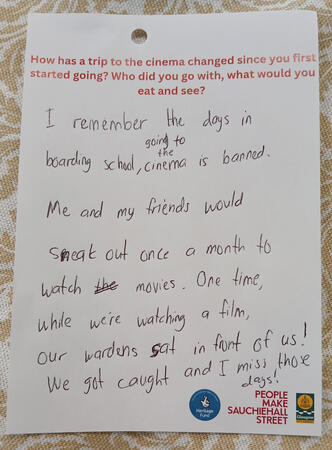 How has a trip to the cinema changed since you first
started going? Who did you go with, what would you
eat and see?
I remember the days in
going to
the
boarding school, cinema is banned.
Me and my friends would
sneak out once a month to
watch the movies. One time,
while we're watching a film,
our wardens sat in front of us!
We got caught and I miss those
days!
Heritage
Fund
PEOPLE
MAKE
SAUCHIEHALL
STREET